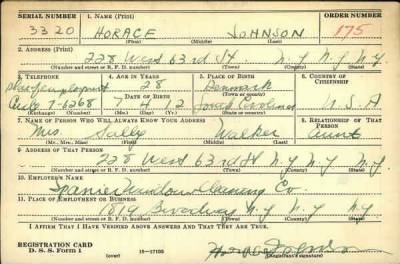 SERIAL NUMBER 1. NAME (Print) ORDER NUMBER
3320 HORACE JOHNSON 175
(First) (Middle) (Last)
2. ADDRESS (Print)
228 West 63rd St N.Y. N.Y. N.Y.
(Number and street or R. F. D. number) (Town) (County) (State)
3. TELEPHONE 4. AGE IN YEARS 5. PLACE OF BIRTH 6. COUNTRY OF CITIZENSHIP
28 Denmark
DATE OF BIRTH
7-6268 7 4 12 South Carolina U.S.A
(Exchange) (Number) (Mo.) (Day) (Yr.) (State or county)
7. NAME OF PERSON WHO WILL ALWAYS KNOW YOUR ADDRESS 8. RELATIONSHIP OF THAT PERSON
Mrs. Sally Walker Aunt
(Mr., Mrs., Miss) (First) (Middle) (Last)
9. ADDRESS OF THAT PERSON
228 West 63rd St N.Y. N.Y. N.Y.
(Number and street or R. F. D. number) (Town) (County) (State)
10. EMPLOYER'S NAME
Window Cleaning Co.
11. PLACE OF EMPLOYMENT OR BUSINESS
1819 Broadway N.Y. N.Y. N.Y.
(Number and street or R. F. D. number) (Town) (County) (State)
I AFFIRM THAT I HAVE VERIFIED ABOVE ANSWERS AND THAT THEY ARE TRUE.
REGISTRATION CARD
D. S. S. Form 1 (over) 16—17105 (Registrant's signature)